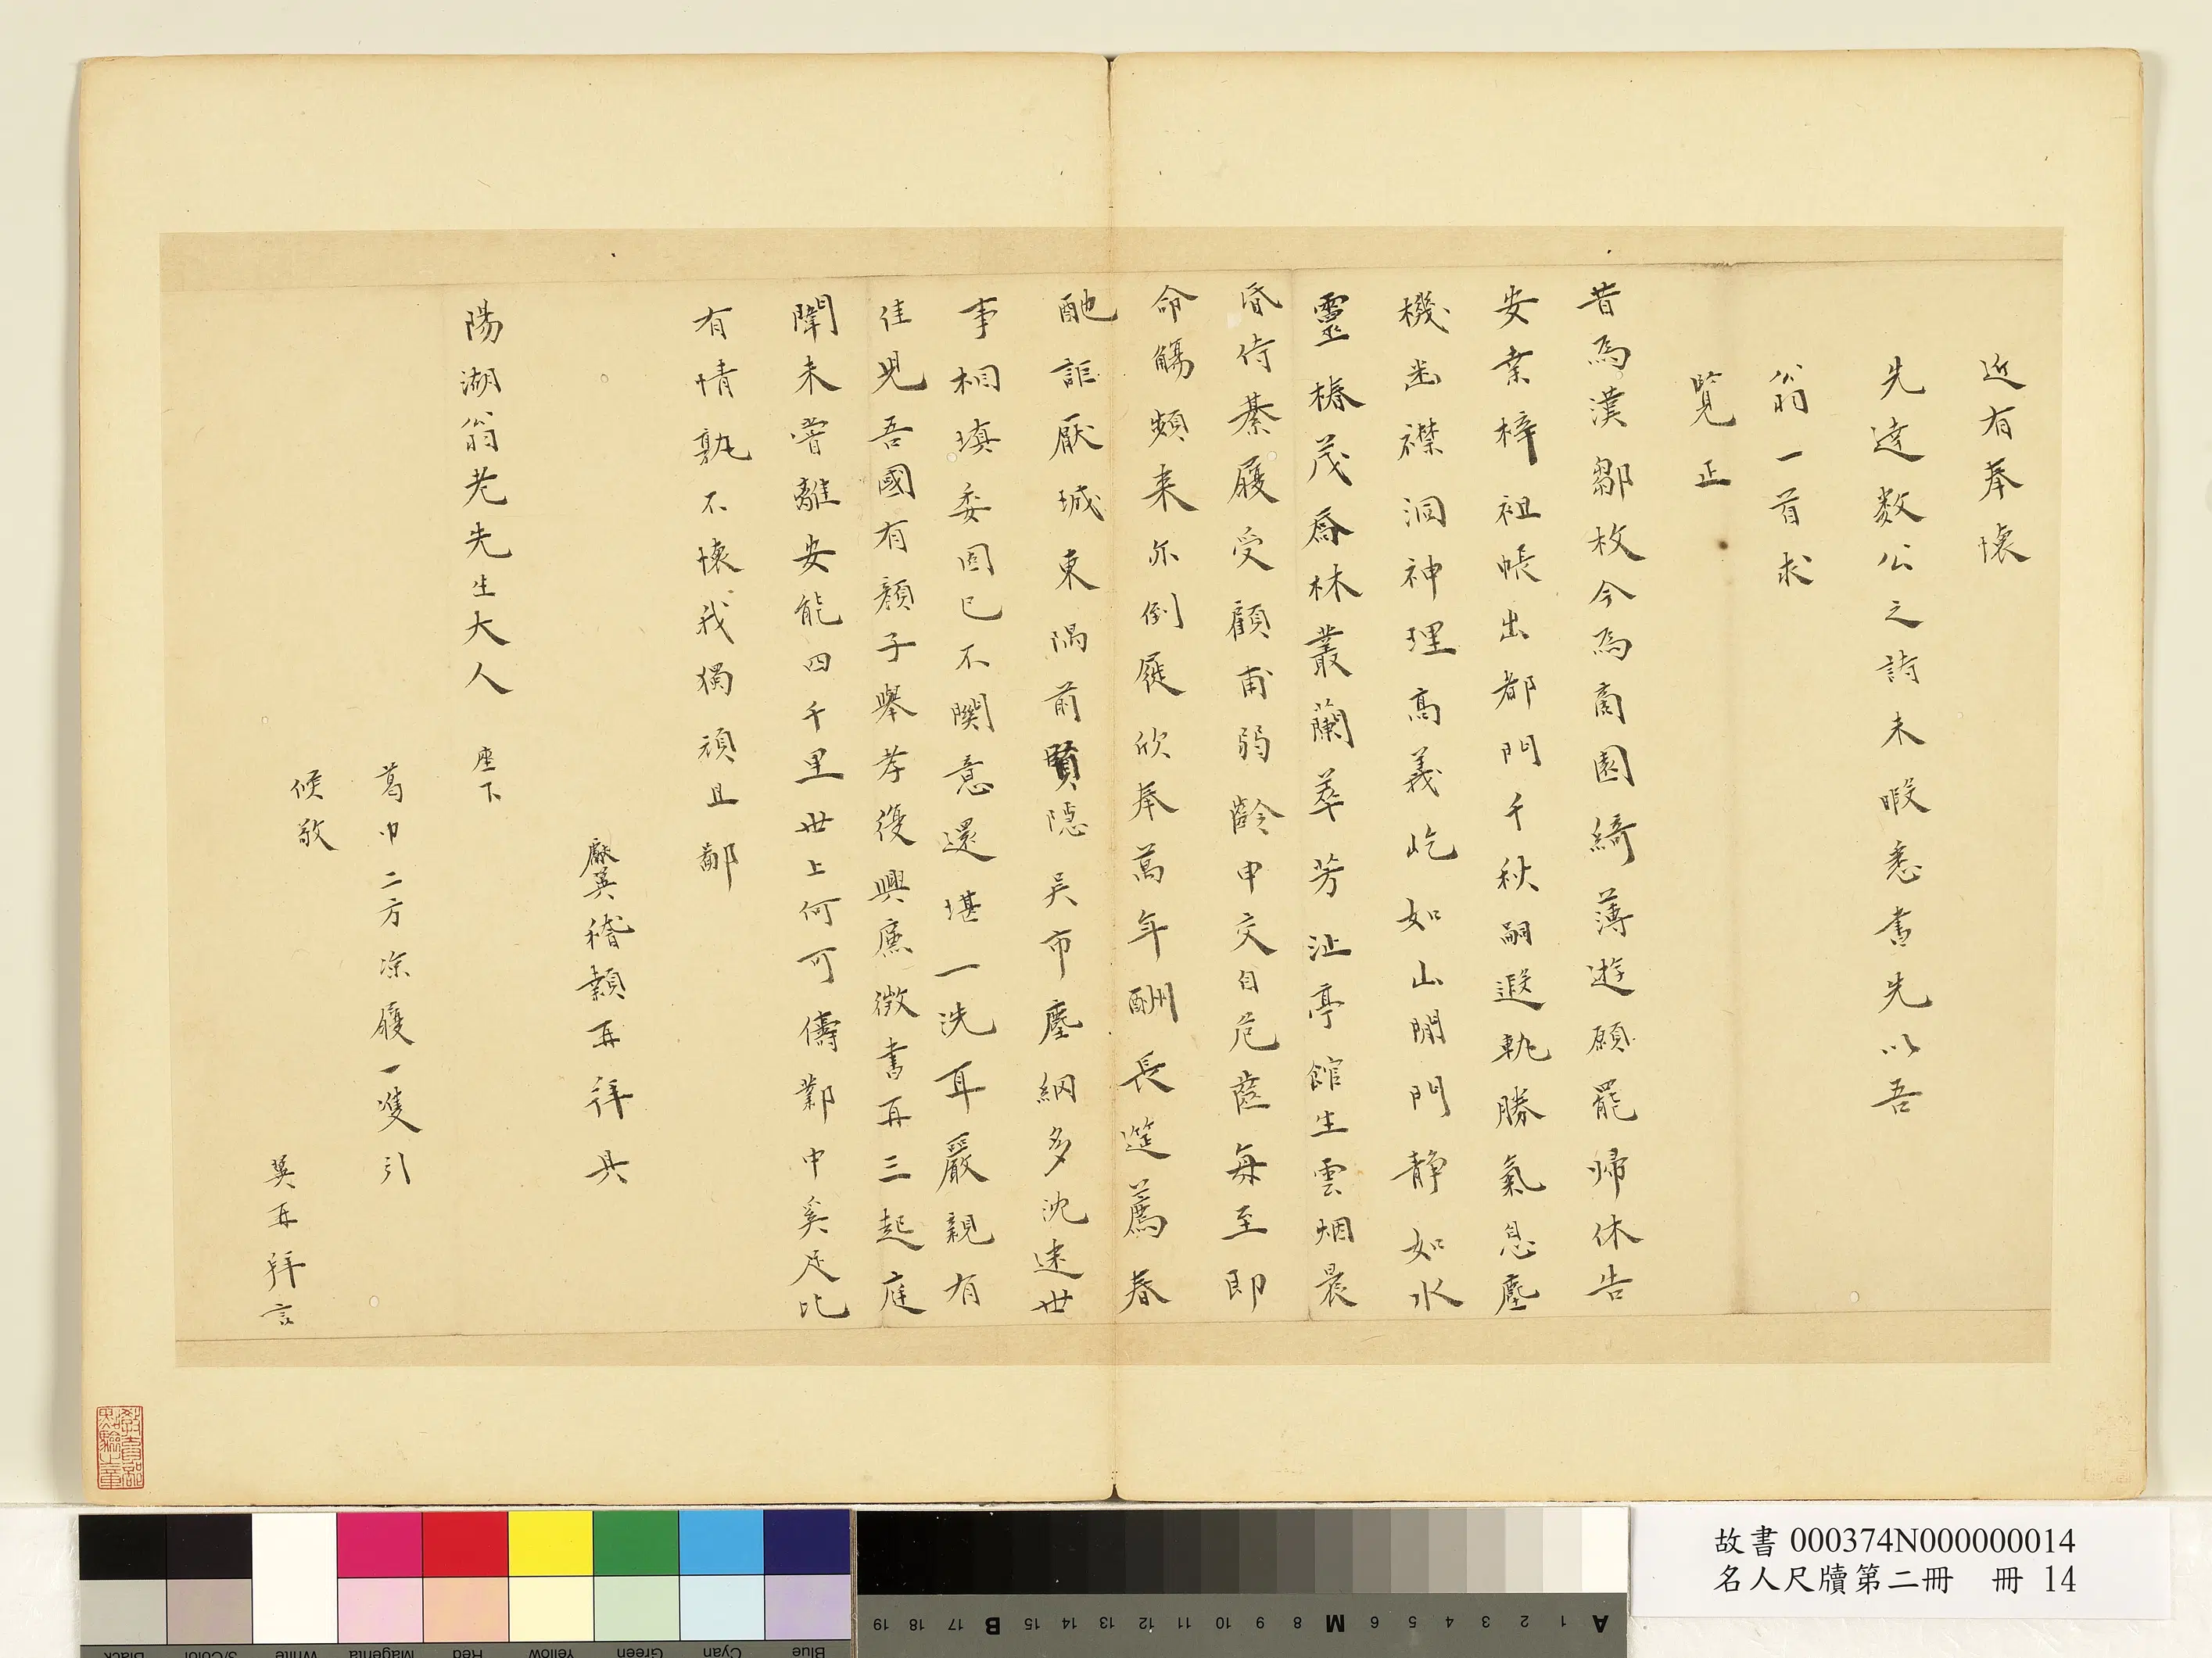 近有奉懷
先達数公之詩未暇悉書先以吾
翁一首求
覽正
昔為漢鄒枚今為商園綺薄遊願罷歸休告
安業梓祖帳出都門千秋嗣遐軌勝氣息塵
機幽襟洞神理高義屹如山閒門靜如水
靈椿茂喬林叢蘭萃芳沚亭館生雲烟晨
昏侍綦履受顧甫弱齡申交自危齒每至即
命觴頻來亦倒屣欣奉萬年酬長筵薦春
酏詎厭城東隅前賢隱吳市塵網多沈迷世
事相填委固已不關意還堪一洗耳嚴親有
佳兒吾國有顏子舉孝復興廉徵書再三起庭
闈未嘗離安能四千里世上何可儔鄴中奚足比
有情孰不懷我獨頑且鄙
獻翼稽顙再拜具
陽湖翁老先生大人 座下
葛巾二方凉履一雙引
候敬
翼再拜言
故書 000374N000000014
名人尺牘第二冊 冊 14
Black
3/Color
White
Magenta
Red
Yellow
Green
Cyan
Blue
19 18 17 B 15 14 13 12 11 10 9 8 M 6 5 4 3 2 1 A